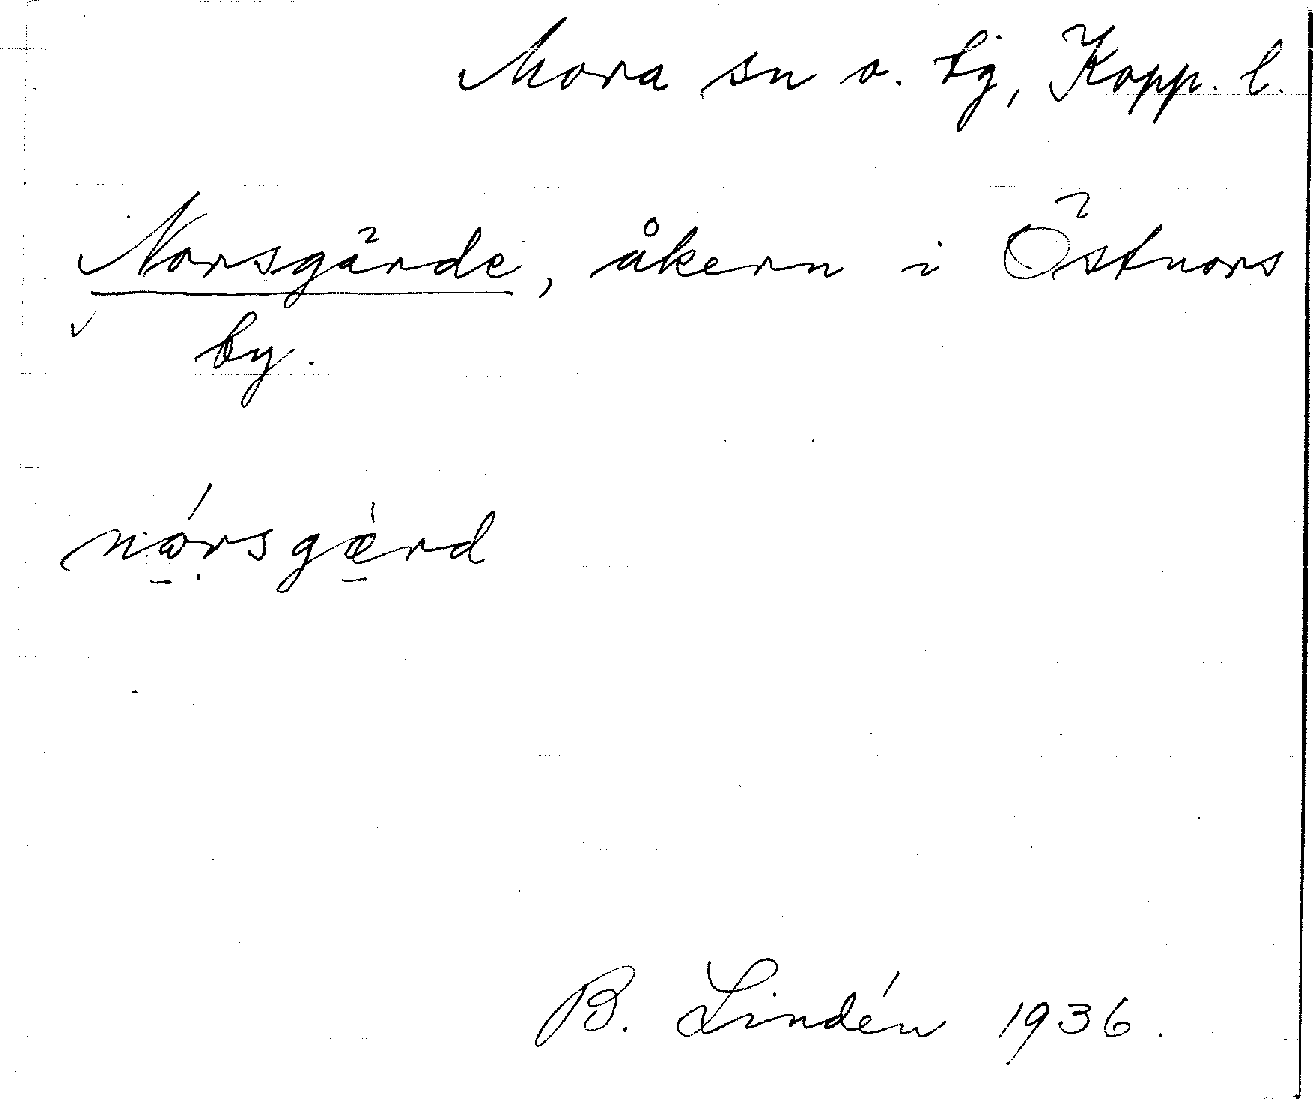 Mora sn o. tg, Kopp. l.
Norsgärde, åkern i Östnors
by.
nǫ́rsgæ̠̀rd
B. Lindén 1936.